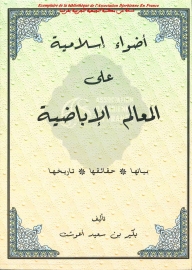 Exemplaire de la bibliothèque de l'Association Djerbienne En France
أضواء إسلامية
على
المعالم الإباضية
بيانها * حقائقها * تاريخها
تأليف
بكير بن سعيد اعوشت